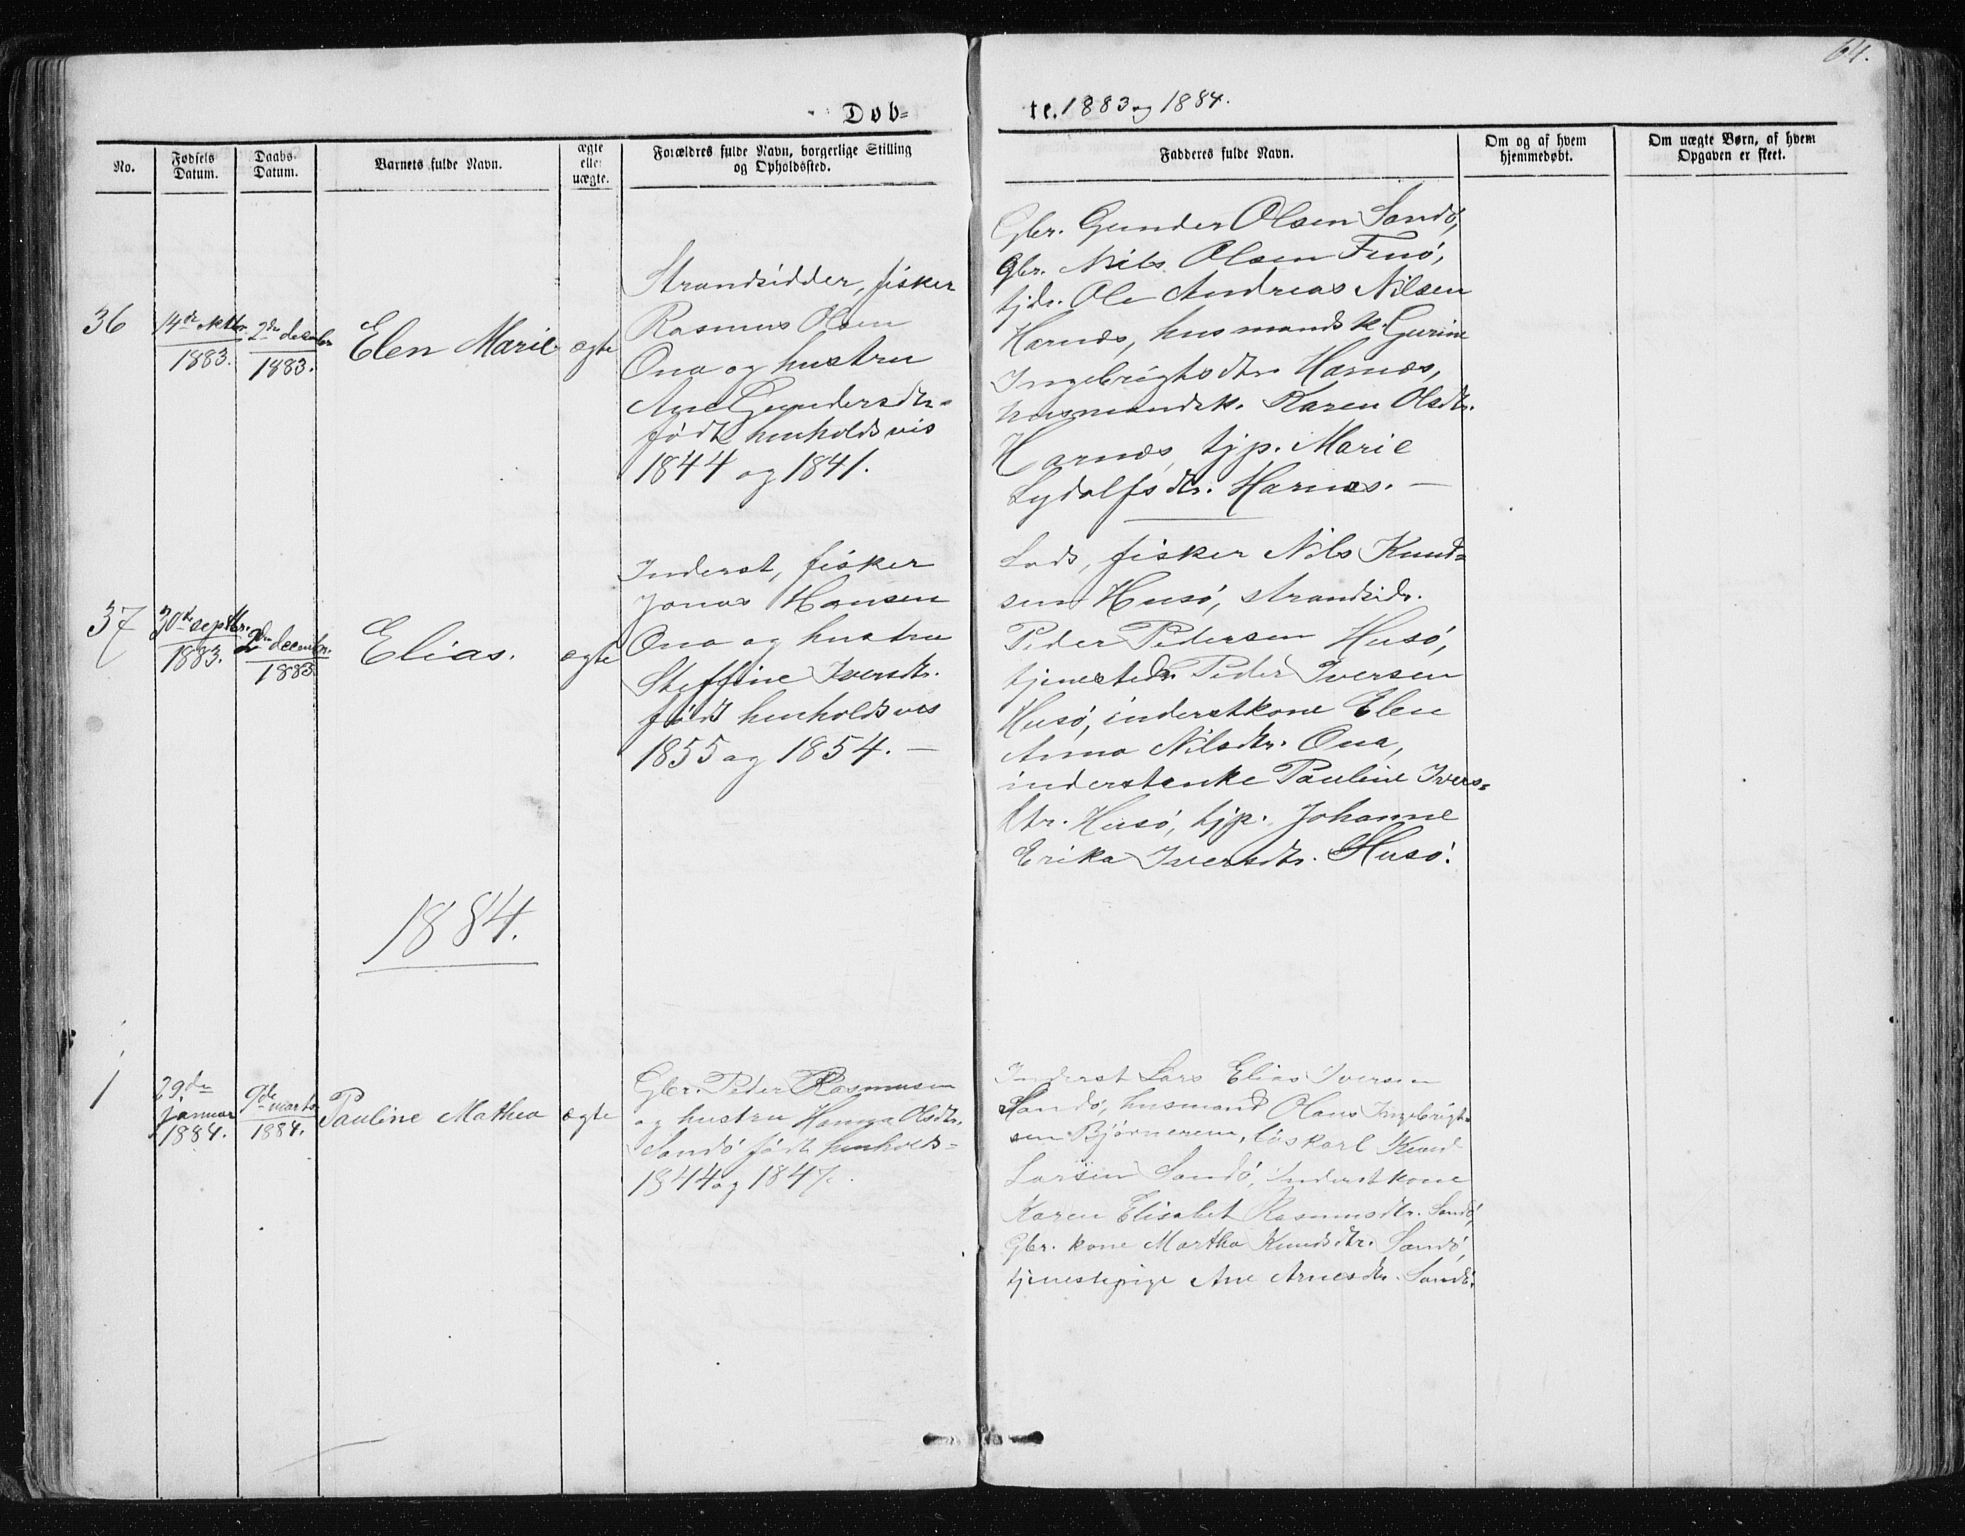 64.
Døb=
te. 1883 og 1884.
No.
Fødsels Datum.
Daabs- Datum.
Barnets fulde Navn.
ægte eller uægte.
Forældres fulde Navn, borgerlige Stilling og Opholdssted.
Fadderes fulde Navn.
Om og af hvem hjemmedøbt.
Om uægte Børn, af hvem Opgaven er skeet.
36
14de oktbr.
1883.
2den decembr.
1883.
Elen Marie
ægte
Strandsidder, fisker
Rasmus Olsen
Ona og hustru
Ane Gundersdtr.
født henholdsvis
1844 og 1841.
Gbr. Gunder Olsen Sandø,
Gbr. Nils Olsen Finø,
tjdr. Ole Andreas Nilsen
Harnæs, husmandsk. Gurine
Ingebrigtsdtr. Harnæs,
husmandsk. Karen Olsdtr.
Harnæs, tjp. Marie
Lydolfsdtr. Harnæs. —
37
30de septbr.
1883.
2den decembr.
1883.
Elias.
ægte
Inderst, fisker
Jonas Hansen
Ona og hustru
Steffine Iversdtr.
født henholdsvis
1855 og 1854. —
Lods, fisker Nils Knud=
sen Husø, strandsidr.
Peder Pedersen Husø,
tjenestedr. Peder Iversen
Husø, inderstkone Elen
Anna Nilsdtr. Ona,
inderstenke Pauline Ivers=
dtr. Husø, tjp. Johanne
Erika Iversdtr. Husø.
1884.
1
29de
januar
1884.
9de marts
1884.
Pauline Mathea
ægte
Gbr. Peder Rasmusen
og hustru Hanna Olsdtr.
Sandø født henholds=
1844 og 1847.
Inderst Lars Elias Iversen
Sandø, husmand Hans Ingebrigt=
sen Bjørnerem, løskarl Knud
Larsen Sandø, Inderstkone
Karen Elisabet Rasmusdtr. Sandø,
Gbr. kone Martha Knudsdtr. Sandø,
tjenestepige Ane Arnesdtr. Sandø.